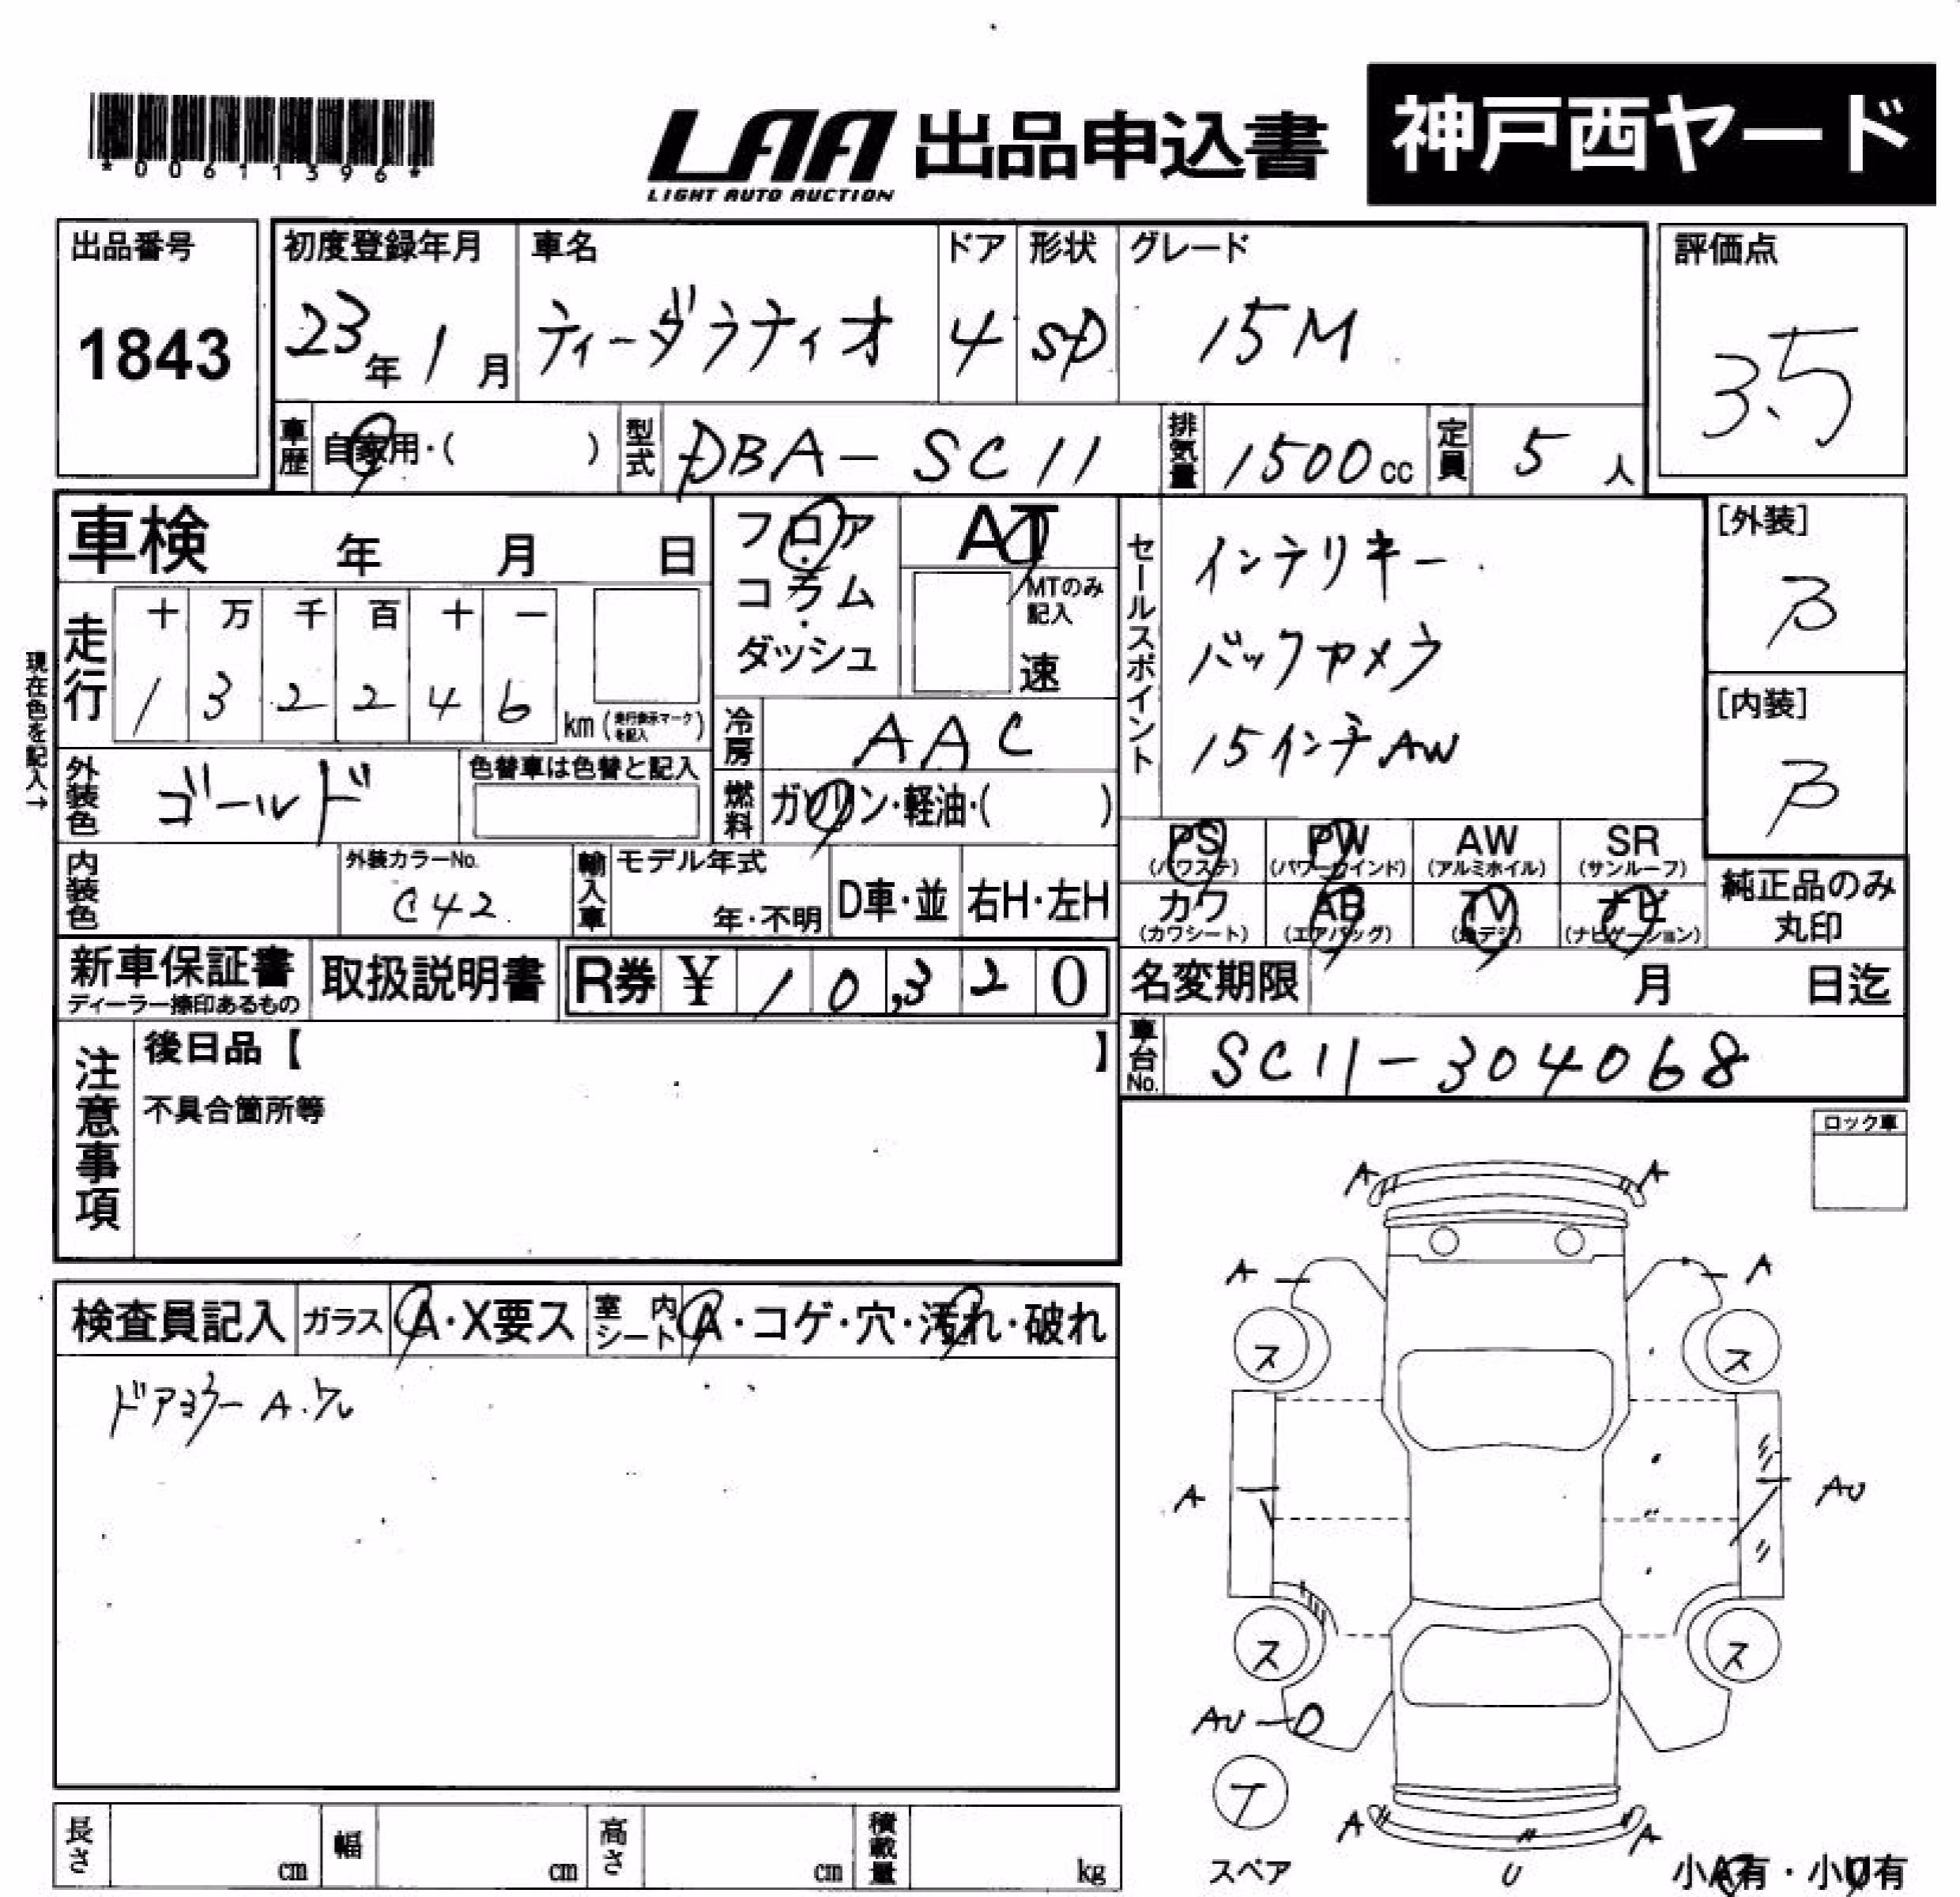 *00611396*
LAA 出品申込書 神戸西ヤード
LIGHT AUTO AUCTION
出品番号 初度登録年月 車名 ドア 形状 グレード 評価点
1843 23年1月 ティーダラティオ 4 SD 15M 3.5
車歴 自家用・( ) 型式 DBA-SC11 排気量 1500cc 定員 5人
車検 年 月 日
フロア・コラム・ダッシュ
AT
MTのみ記入
速
セールスポイント
インテリキー
バックカメラ
15インチAW
[外装]
B
[内装]
B
現在色を記入→
走行 十 万 千 百 十 一
1 3 2 2 4 6 km (走行表示マークを記入)
冷房 AAC
外装色 ゴールド 色替車は色替と記入
燃料 ガソリン・軽油・( )
PS (パワステ) PW (パワーウインド) AW (アルミホイル) SR (サンルーフ)
カワ (カワシート) AB (エアバッグ) TV (地デジ) ナビ (ナビゲーション)
純正品のみ丸印
内装色 外装カラーNo. C42 輸入車 モデル年式 年・不明 D車・並 右H・左H
新車保証書 ディーラー捺印あるもの 取扱説明書 R券 ¥ 10,320
名変期限 月 日迄
車台No. SC11-304068
注意事項
後日品【 】
不具合箇所等
ロック車
検査員記入 ガラス A・X要ス 室内シート A・コゲ・穴・汚れ・破れ
ドアミラー A.
A A
A A
ス ス
A AU
ス ス
AU
T
スペア
A A
U
小A有・小U有
長さ cm 幅 cm 高さ cm 積載量 kg